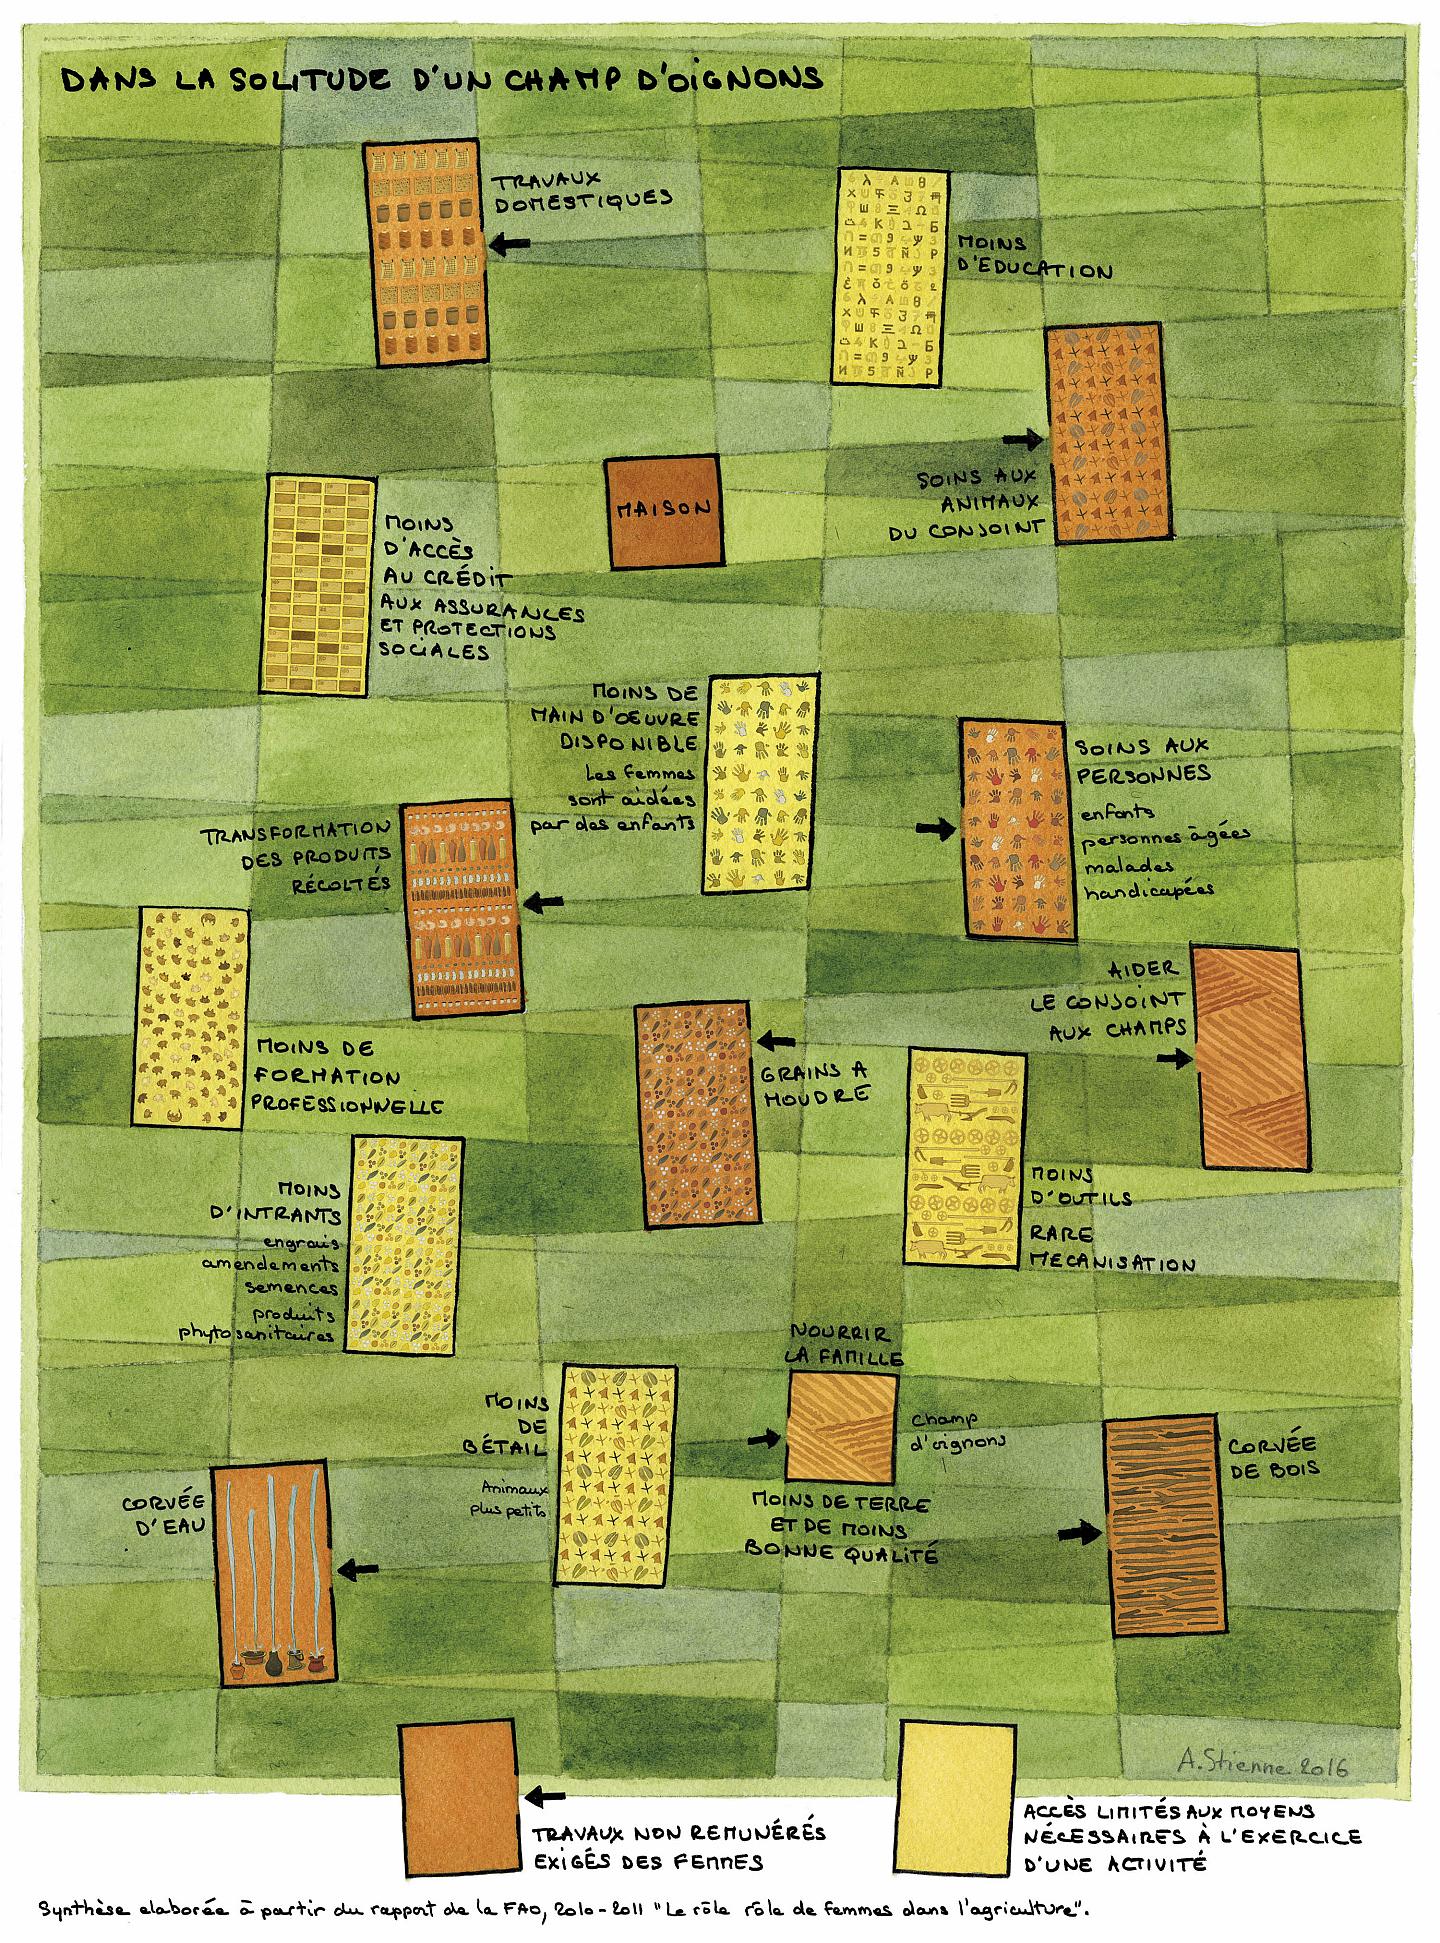 DANS LA SOLITUDE D'UN CHAMP D'OIGNONS
TRAVAUX
DOMESTIQUES
MOINS
D'EDUCATION
SOINS AUX
ANIMAUX
DU CONJOINT
MAISON
MOINS
D'ACCÈS
AU CRÉDIT
AUX ASSURANCES
ET PROTECTIONS
SOCIALES
MOINS DE
MAIN D'ŒUVRE
DISPONIBLE
Les femmes
sont aidées
par des enfants
SOINS AUX
PERSONNES
enfants
personnes âgées
malades
handicapées
TRANSFORMATION
DES PRODUITS
RÉCOLTÉS
AIDER
LE CONJOINT
AUX CHAMPS
MOINS DE
FORMATION
PROFESSIONNELLE
GRAINS A
MOUDRE
MOINS
D'OUTILS
RARE
MECANISATION
MOINS
D'INTRANTS
engrais
amendements
semences
produits
phytosanitaires
NOURRIR
LA FAMILLE
champ
d'oignons
MOINS DE TERRE
ET DE MOINS
BONNE QUALITÉ
MOINS
DE
BÉTAIL
Animaux
plus petits
CORVÉE
DE BOIS
CORVÉE
D'EAU
A. Stienne 2016
TRAVAUX NON REMUNÉRÉS
EXIGÉS DES FEMMES
ACCÈS LIMITÉS AUX MOYENS
NÉCESSAIRES À L'EXERCICE
D'UNE ACTIVITÉ
Synthèse elaborée à partir du rapport de la FAO, 2010-2011 "Le rôle rôle de femmes dans l'agriculture".